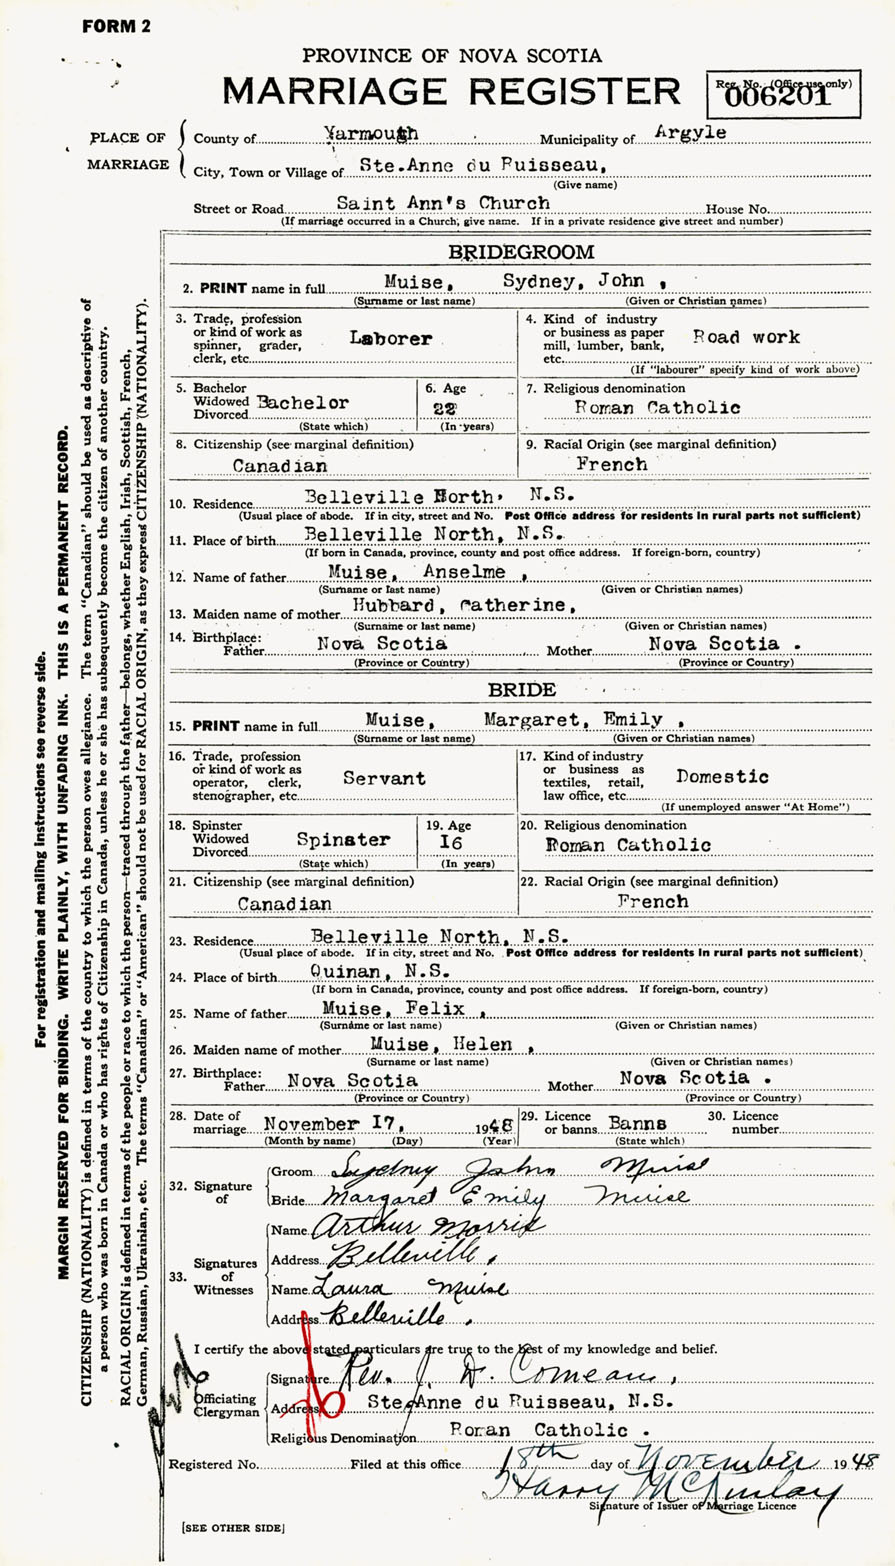 FORM 2
PROVINCE OF NOVA SCOTIA
MARRIAGE REGISTER
Reg. No. (Office use only)
006201
PLACE OF MARRIAGE
County of Yarmough Municipality of Argyle
City, Town or Village of Ste.Anne du Ruisseau,
(Give name)
Street or Road Saint Ann's Church House No.
(If marriage occurred in a Church, give name. If in a private residence give street and number)
BRIDEGROOM
2. PRINT name in full Muise, Sydney, John ,
(Surname or last name) (Given or Christian names)
3. Trade, profession or kind of work as spinner, grader, clerk, etc. Laborer
4. Kind of industry or business as paper mill, lumber, bank, etc. Road work
(If "labourer" specify kind of work above)
5. Bachelor Widowed Divorced Bachelor
(State which)
6. Age 22
(In years)
7. Religious denomination
Roman Catholic
8. Citizenship (see marginal definition)
Canadian
9. Racial Origin (see marginal definition)
French
10. Residence Belleville North, N.S.
(Usual place of abode. If in city, street and No. Post Office address for residents in rural parts not sufficient)
11. Place of birth Belleville North, N.S.
(If born in Canada, province, county and post office address. If foreign-born, country)
12. Name of father Muise, Anselme ,
(Surname or last name) (Given or Christian names)
13. Maiden name of mother Hubbard, Catherine,
(Surname or last name) (Given or Christian names)
14. Birthplace: Father Nova Scotia Mother Nova Scotia .
(Province or Country) (Province or Country)
BRIDE
15. PRINT name in full Muise, Margaret, Emily ,
(Surname or last name) (Given or Christian names)
16. Trade, profession or kind of work as operator, clerk, stenographer, etc. Servant
17. Kind of industry or business as textiles, retail, law office, etc. Domestic
(If unemployed answer "At Home")
18. Spinster Widowed Divorced Spinster
(State which)
19. Age I6
(In years)
20. Religious denomination
Roman Catholic
21. Citizenship (see marginal definition)
Canadian
22. Racial Origin (see marginal definition)
French
23. Residence Belleville North, N.S.
(Usual place of abode. If in city, street and No. Post Office address for residents in rural parts not sufficient)
24. Place of birth Quinan, N.S.
(If born in Canada, province, county and post office address. If foreign-born, country)
25. Name of father Muise, Felix ,
(Surname or last name) (Given or Christian names)
26. Maiden name of mother Muise, Helen ,
(Surname or last name) (Given or Christian names)
27. Birthplace: Father Nova Scotia Mother Nova Scotia .
(Province or Country) (Province or Country)
28. Date of marriage November I7, 1948
(Month by name) (Day) (Year)
29. Licence or banns Banns
(State which)
30. Licence number
32. Signature of
Groom Sydney John Muise
Bride Margaret Emily Muise
33. Signatures of Witnesses
Name Arthur Morris
Address Belleville.
Name Laura Muise
Address Belleville.
I certify the above stated particulars are true to the best of my knowledge and belief.
Officiating Clergyman
Signature Rev. J. D. Comeau,
Address Ste.Anne du Ruisseau, N.S.
Religious Denomination Roman Catholic .
Registered No. Filed at this office 18th day of November 1948
Harry McKinlay
Signature of Issuer of Marriage Licence
[SEE OTHER SIDE]
For registration and mailing instructions see reverse side.
MARGIN RESERVED FOR BINDING. WRITE PLAINLY, WITH UNFADING INK. THIS IS A PERMANENT RECORD.
CITIZENSHIP (NATIONALITY) is defined in terms of the country to which the person owes allegiance. The term "Canadian" should be used as descriptive of
a person who was born in Canada or who has rights of Citizenship in Canada, unless he or she has subsequently become the citizen of another country.
RACIAL ORIGIN is defined in terms of the people or race to which the person—traced through the father—belongs, whether English, Irish, Scottish, French,
German, Russian, Ukrainian, etc. The terms "Canadian" or "American" should not be used for RACIAL ORIGIN, as they express CITIZENSHIP (NATIONALITY).